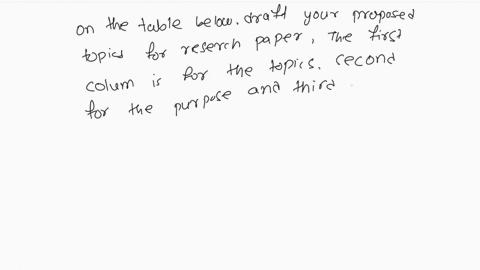 on the table below. draft your proposed
topics for reserch paper, The first
colum is for the topics. second
for the purpose and third